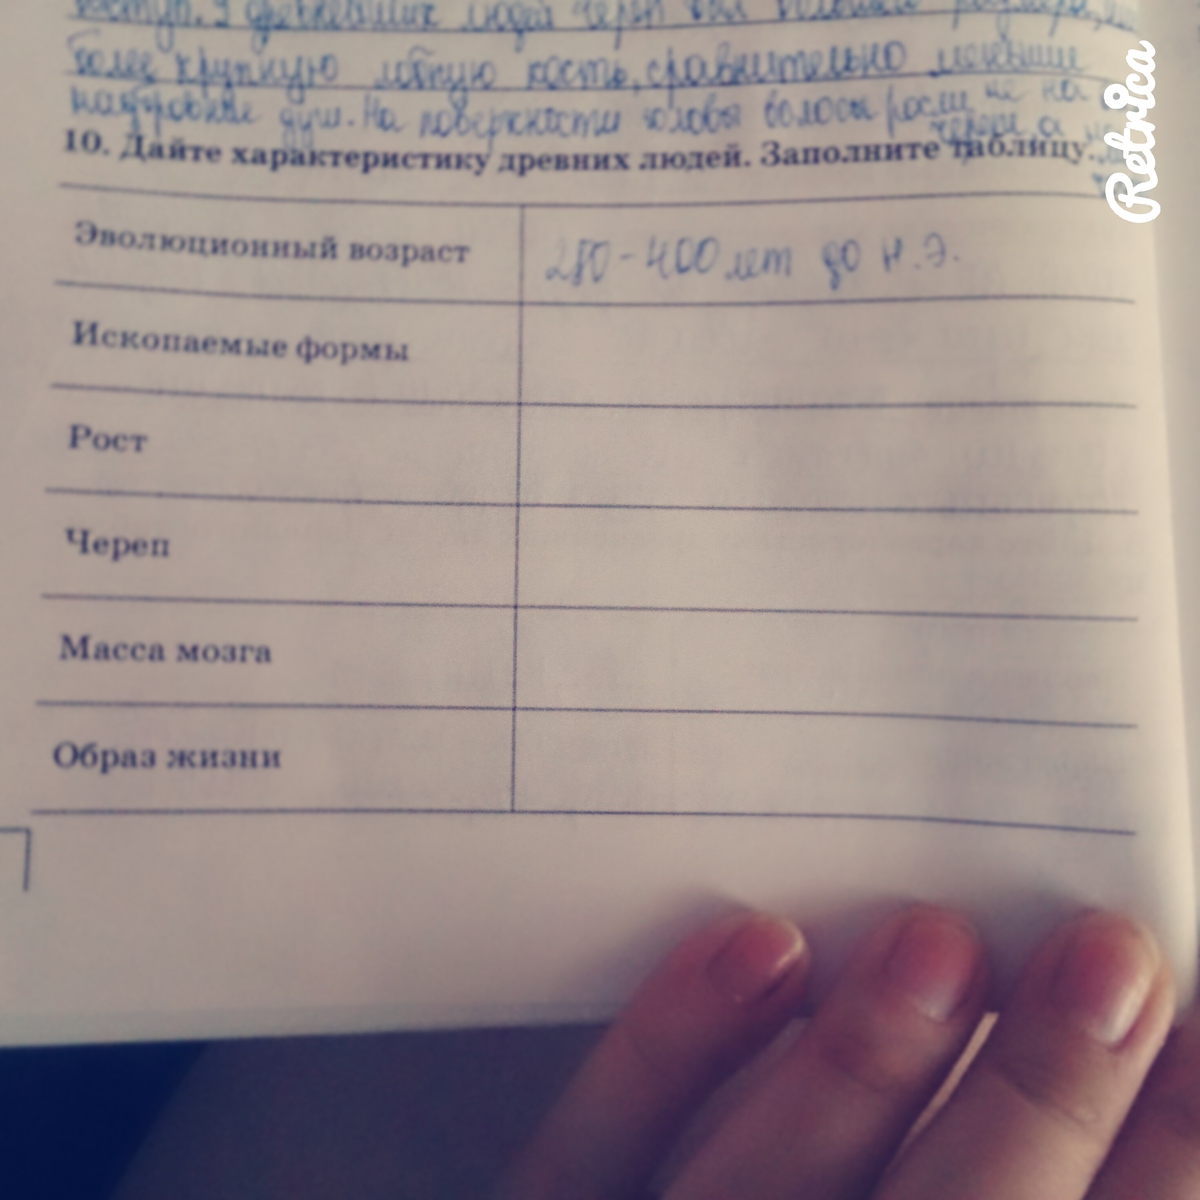 более крупную лобную кость, сравнительно меньшие
надбровные дуги. На поверхности головы волосы росли не на
10. Дайте характеристику древних людей. Заполните таблицу.
Эволюционный возраст 250-400 лет до н.э.
Ископаемые формы
Рост
Череп
Масса мозга
Образ жизни
Retrica